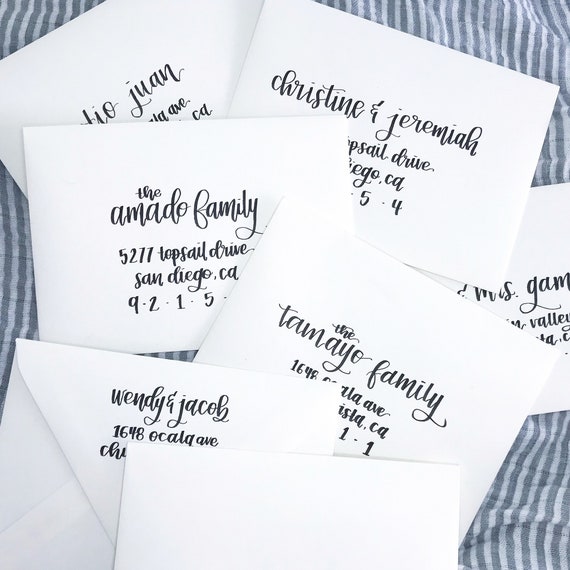 tio juan
ave.
ca
christine & jeremiah
topsail drive
diego, ca
5 · 4
the
amado family
5277 topsail drive
san diego, ca
9 · 2 · 1 · 5 ·
& mrs. gam
valley
ca
the
tamayo family
1648 ocala ave
vista, ca
1 · 1
wendy & jacob
1648 ocala ave
chu
ca